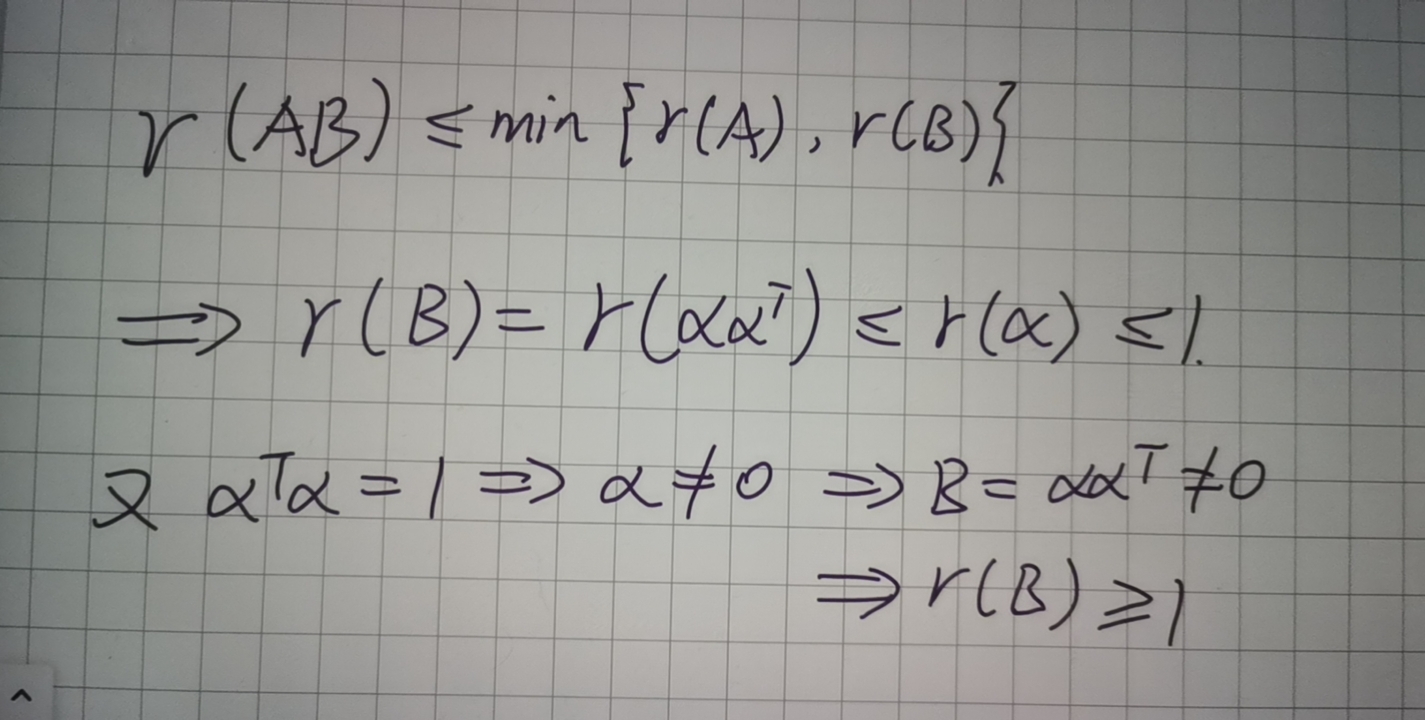 r(AB) ≤ min {r(A), r(B)}
⟹ r(B) = r(αα^T) ≤ r(α) ≤ 1.
又 α^Tα = 1 ⟹ α ≠ 0 ⟹ B = αα^T ≠ 0
⟹ r(B) ≥ 1